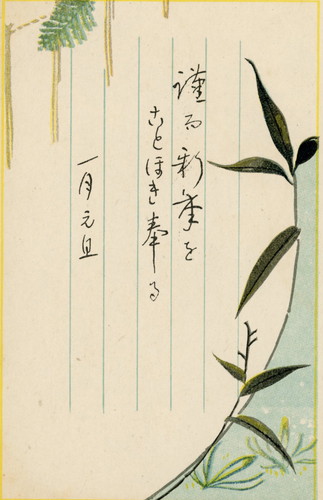 謹而新年を
ことほぎ奉る
一月元旦